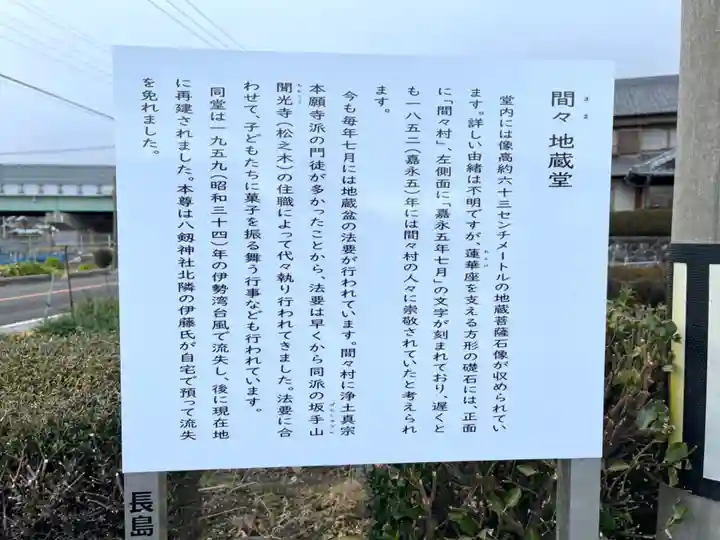 間々 地蔵堂
まま
堂内には像高約六十三センチメートルの地蔵菩薩石像が収められてい
ます。詳しい由緒は不明ですが、蓮華座を支える方形の礎石には、正面
れんげ
に「間々村」、左側面に「嘉永五年七月」の文字が刻まれており、遅くと
も一八五二(嘉永五)年には間々村の人々に崇敬されていたと考えられ
ます。
今も毎年七月には地蔵盆の法要が行われています。間々村に浄土真宗
本願寺派の門徒が多かったことから、法要は早くから同派の坂手山
聞光寺(松之木)の住職によって代々執り行われてきました。法要に合
わせて、子どもたちに菓子を振る舞う行事なども行われています。
同堂は一九五九(昭和三十四)年の伊勢湾台風で流失し、後に現在地
に再建されました。本尊は八剱神社北隣の伊藤氏が自宅で預って流失
を免れました。
長島